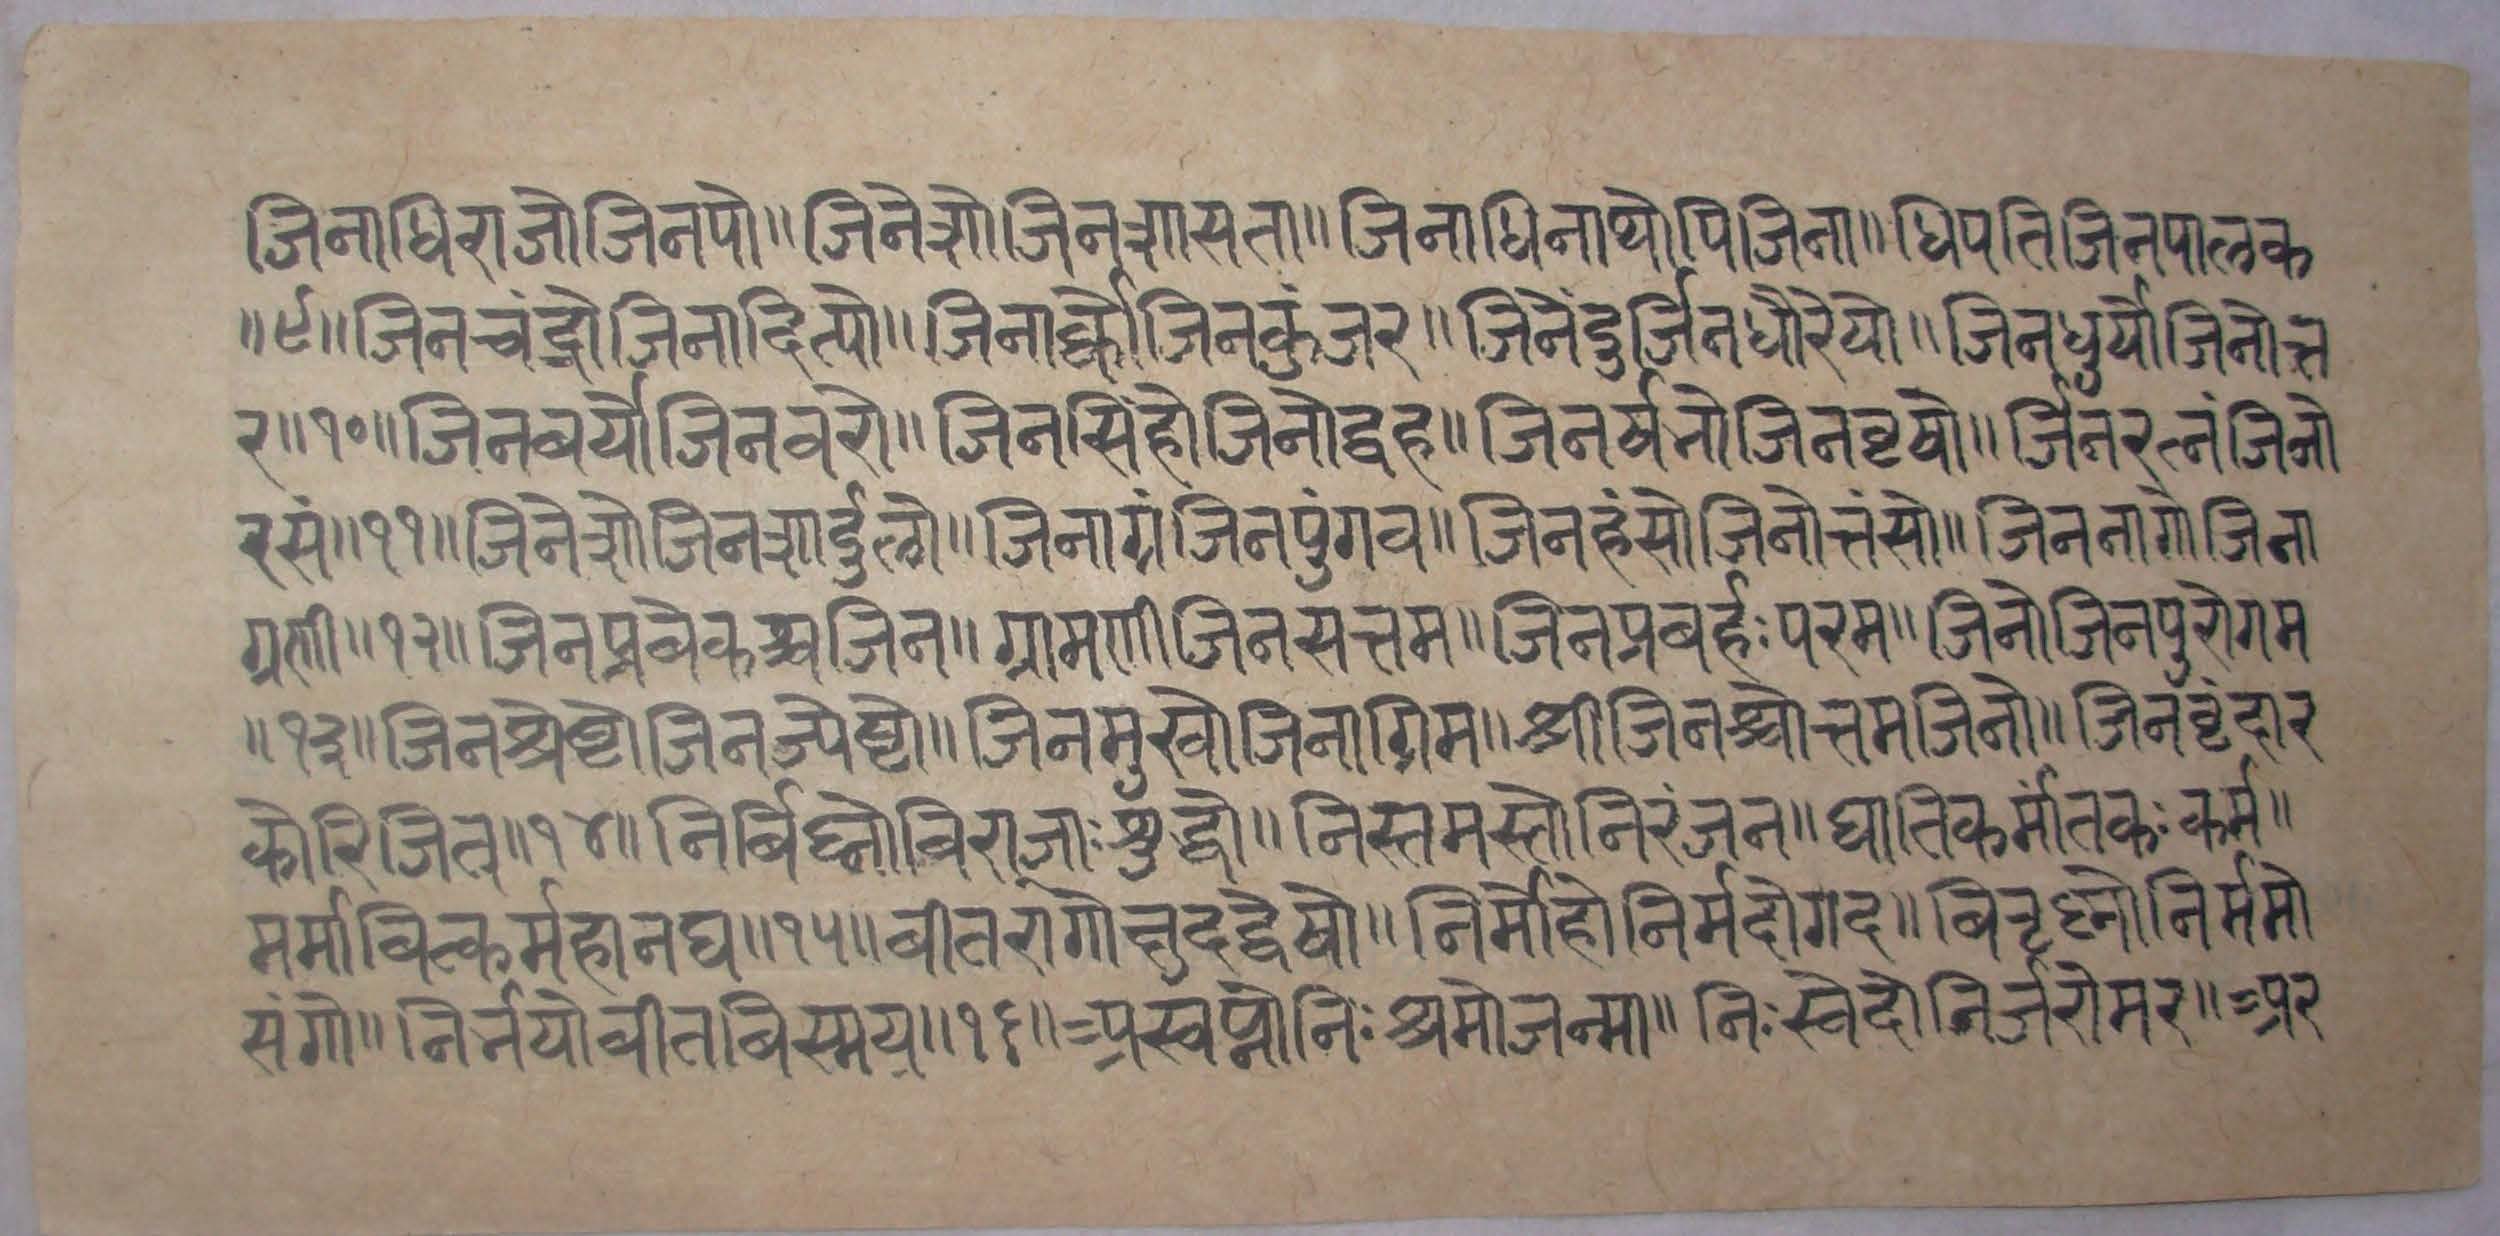 जिनाधिराजोजिनपो॥जिनेशोजिनशासता॥जिनाधिनाथोपिजिना॥धिपतिजिनपालक
॥९॥जिनचंद्रोजिनादित्यो॥जिनार्कोजिनकुंजर॥जिनेंदुर्जिनधौरेयो॥जिनधुर्योजिनोत्त
र॥१०॥जिनवर्योजिनवरो॥जिनसिंहोजिनोद्वह॥जिनर्षभोजिनवृषो॥र्जिनरत्नंजिनो
रसं॥११॥जिनेशोजिनशार्दुलो॥जिनाग्रंजिनपुंगव॥जिनहंसोजिनोत्तंसो॥जिननागोजिना
ग्रणी॥१२॥जिनप्रवेकश्चजिन॥ग्रामणीजिनसत्तम॥जिनप्रवर्हःपरम॥जिनोजिनपुरोगम
॥१३॥जिनश्रेष्टोजिनज्येष्टो॥जिनमुखोजिनाग्रिम॥श्रीजिनश्चोत्तमजिनो॥जिनवृंदार
कोरिजित्॥१४॥निर्विघ्नोविराजाःशुद्धो॥निस्तमस्तोनिरंजन॥घातिकर्मांतकःकर्म॥
मर्मावित्कर्महानघ॥१५॥वीतरागोत्तुदद्वेषो॥निर्मोहोनिर्मदोगद॥वितृष्नोनिर्ममो
संगो॥निर्भयोवीतविस्मय॥१६॥ऽप्रस्वप्नोनिःश्रमोजन्मा॥निःस्वेदोनिर्जरोमर॥ऽप्रर